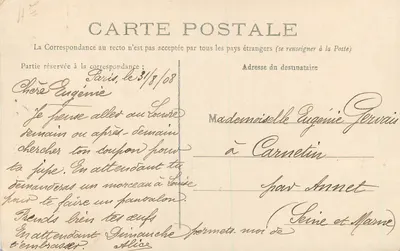 CARTE POSTALE
La Correspondance au recto n'est pas acceptée par tous les pays étrangers (se renseigner à la Poste)
Partie réservée à la correspondance :
Adresse du destinataire
Paris, le 31/8/08
Chère Eugénie
Je pense aller au Louvre
demain ou après-demain
chercher ton coupon pour
ta jupe. En attendant tu
demanderas un morceau à Louise
pour te faire un pantalon.
Prends bien tes œufs
En attendant Dimanche permets moi de
t'embrasser Alice
Mademoiselle Eugénie Gervais
à Carnetin
par Annet
(Seine et Marne)